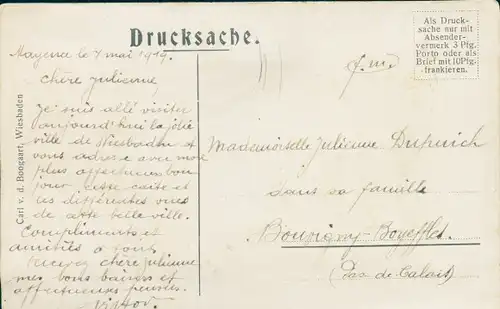 Drucksache.
Als Druck-
sache nur mit
Absender-
vermerk 3 Pfg.
Porto oder als
Brief mit 10 Pfg.
frankieren.
Carl v. d. Boogaart, Wiesbaden
Mayence le 7 mai 1919.
Chère Julienne
je suis allé visiter
aujourd'hui la jolie
ville de Wiesbaden et
vous adresse avec mon
plus affectueux bon
jour cette carte et
les différentes vues
de cette belle ville.
Compliments et
amitiés à tous
recevez chère Julienne
mes bons baisers et
affectueuses pensées.
Victor.
f. m.
Mademoiselle Julienne Dupuich
dans sa famille
Bouvigny-Boyeffles
(Pas-de-Calais)